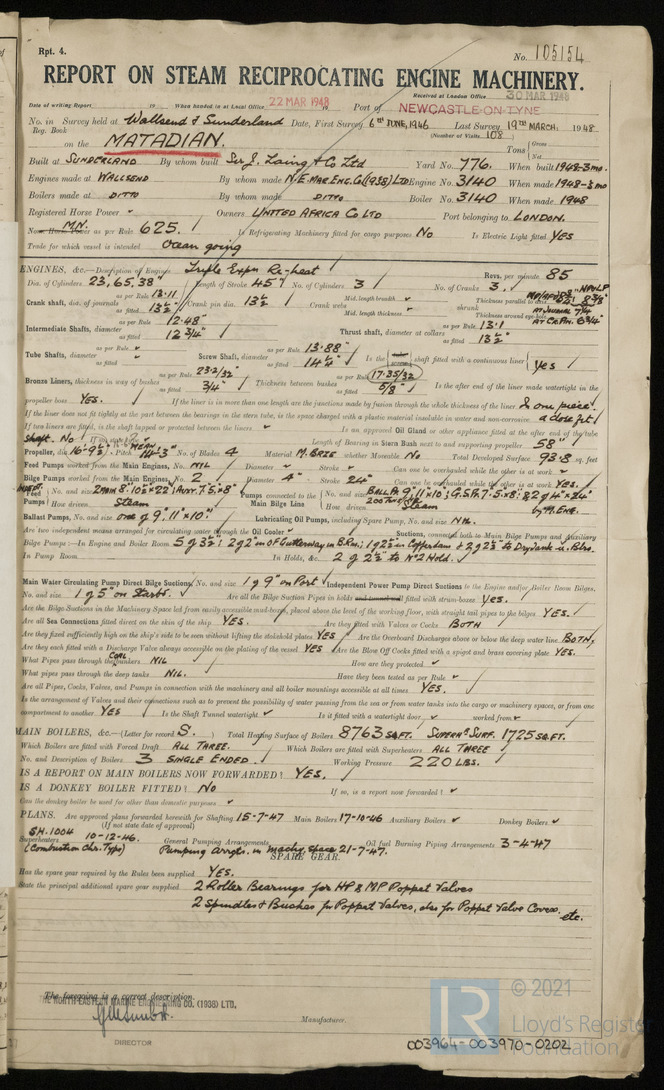 Rpt. 4.
No. 105154
REPORT ON STEAM RECIPROCATING ENGINE MACHINERY.
Received at London Office 30 MAR 1948
Date of writing Report 19 When handed in at Local Office 22 MAR 1948 Port of NEWCASTLE-ON-TYNE
No. in Survey held at Wallsend & Sunderland Date, First Survey 6TH JUNE, 1946 Last Survey 19TH MARCH, 1948
Reg. Book (Number of Visits 108)
on the MATADIAN. Tons { Gross Net
Built at SUNDERLAND By whom built Sir J. Laing & Co Ltd Yard No. 776. When built 1948-3mo.
Engines made at WALLSEND By whom made N.E. MAR. ENG. Co (1938) LTD Engine No. 3140 When made 1948-3mo
Boilers made at DITTO By whom made DITTO Boiler No. 3140 When made 1948
Registered Horse Power Owners UNITED AFRICA CO LTD Port belonging to LONDON.
M.N. as per Rule 625. Is Refrigerating Machinery fitted for cargo purposes No Is Electric Light fitted YES
Trade for which vessel is intended Ocean going
ENGINES, &c.—Description of Engines Triple Expn Re-heat Revs. per minute 85
Dia. of Cylinders 23, 65, 38" Length of Stroke 45" No. of Cylinders 3 No. of Cranks 3.
Crank shaft, dia. of journals as per Rule 13.11 as fitted 13½ Crank pin dia. 13½ Crank webs Mid. length breadth Mid. length thickness shrunk Thickness parallel to axis Thickness around eye-hole
AT JOURNAL 7¼
AT CR. PN. 6¾"
Intermediate Shafts, diameter as per Rule 12.48" as fitted 12¾" Thrust shaft, diameter at collars as per Rule 13.1 as fitted 13½"
Tube Shafts, diameter as per Rule as fitted Screw Shaft, diameter as per Rule 13.88" as fitted 14¼" Is the screw shaft fitted with a continuous liner Yes
Bronze Liners, thickness in way of bushes as per Rule 23.2/32 as fitted 3/4" Thickness between bushes as per Rule 17.35/32 as fitted 5/8" Is the after end of the liner made watertight in the
propeller boss YES. If the liner is in more than one length are the junctions made by fusion through the whole thickness of the liner In one piece.
If the liner does not fit tightly at the part between the bearings in the stern tube, is the space charged with a plastic material insoluble in water and non-corrosive a close fit
If two liners are fitted, is the shaft lapped or protected between the liners Is an approved Oil Gland or other appliance fitted at the after end of the tube
shaft. No Length of Bearing in Stern Bush next to and supporting propeller 58"
Propeller, dia. 16'-9½" Pitch MEAN 14'-3" No. of Blades 4 Material M. BRZE whether Moveable No Total Developed Surface 93.8 sq. feet
Feed Pumps worked from the Main Engines, No. NIL Diameter Stroke Can one be overhauled while the other is at work
Bilge Pumps worked from the Main Engines, No. 2 Diameter 4" Stroke 24" Can one be overhauled while the other is at work YES.
Feed Pumps No. and size 2 MAIN 8".10½"×22"; AUXY. 7".5"×8" How driven Steam
Pumps connected to the Main Bilge Line No. and size BALL. P. 9".11"×10"; G.S.P. 7".5"×8"; & 2 of 4"×24" How driven Steam by M. ENG.
Ballast Pumps, No. and size one of 9".11"×10" Lubricating Oil Pumps, including Spare Pump, No. and size NIL.
Are two independent means arranged for circulating water through the Oil Cooler Suctions, connected both to Main Bilge Pumps and Auxiliary
Bilge Pumps:—In Engine and Boiler Room 5 of 3½"; 2 of 2" in OF Gutterway in B. Rm.; 1 of 2½" in Cofferdam & 2 of 2½" to Dry tank in Blrs.
In Pump Room In Holds, &c. 2 of 2½" to No 2 Hold.
Main Water Circulating Pump Direct Bilge Suctions, No. and size 1 of 9" on Port Independent Power Pump Direct Suctions to the Engine and/or Boiler Room Bilges,
No. and size 1 of 5" on Starbd. Are all the Bilge Suction Pipes in holds and tunnel well fitted with strum-boxes yes.
Are the Bilge-Suctions in the Machinery Space led from easily accessible mud-boxes, placed above the level of the working floor, with straight tail pipes to the bilges YES.
Are all Sea Connections fitted direct on the skin of the ship YES. Are they fitted with Valves or Cocks BOTH
Are they fixed sufficiently high on the ship's side to be seen without lifting the stokehold plates YES Are the Overboard Discharges above or below the deep water line BOTH,
Are they each fitted with a Discharge Valve always accessible on the plating of the vessel YES Are the Blow Off Cocks fitted with a spigot and brass covering plate YES.
What Pipes pass through the COAL bunkers NIL How are they protected
What pipes pass through the deep tanks NIL. Have they been tested as per Rule
Are all Pipes, Cocks, Valves, and Pumps in connection with the machinery and all boiler mountings accessible at all times YES.
Is the arrangement of Valves and their connections such as to prevent the possibility of water passing from the sea or from water tanks into the cargo or machinery spaces, or from one
compartment to another YES Is the Shaft Tunnel watertight Is it fitted with a watertight door worked from
MAIN BOILERS, &c.—(Letter for record S.) Total Heating Surface of Boilers 8763 SQ. FT. SUPERHR SURF. 1725 SQ. FT.
Which Boilers are fitted with Forced Draft ALL THREE. Which Boilers are fitted with Superheaters ALL THREE
No. and Description of Boilers 3 SINGLE ENDED. Working Pressure 220 LBS.
IS A REPORT ON MAIN BOILERS NOW FORWARDED? YES.
IS A DONKEY BOILER FITTED? NO If so, is a report now forwarded?
Can the donkey boiler be used for other than domestic purposes
PLANS. Are approved plans forwarded herewith for Shafting 15-7-47 Main Boilers 17-10-46 Auxiliary Boilers Donkey Boilers
(If not state date of approval)
SH. 1004 10-12-46.
Superheaters General Pumping Arrangements Oil fuel Burning Piping Arrangements 3-4-47
(Combustion Chr. Type) Pumping Arrgts. in Machy. space 21-7-47.
SPARE GEAR.
Has the spare gear required by the Rules been supplied YES.
State the principal additional spare gear supplied 2 Roller Bearings for HP & MP Poppet Valves
2 Spindles & Bushes for Poppet Valves, also for Poppet Valve Covers, etc.
The foregoing is a correct description.
THE NORTH-EASTERN MARINE ENGINEERING CO. (1938) LTD.
Manufacturer.
DIRECTOR
© 2021
Lloyd's Register
Foundation
003964-003970-0202